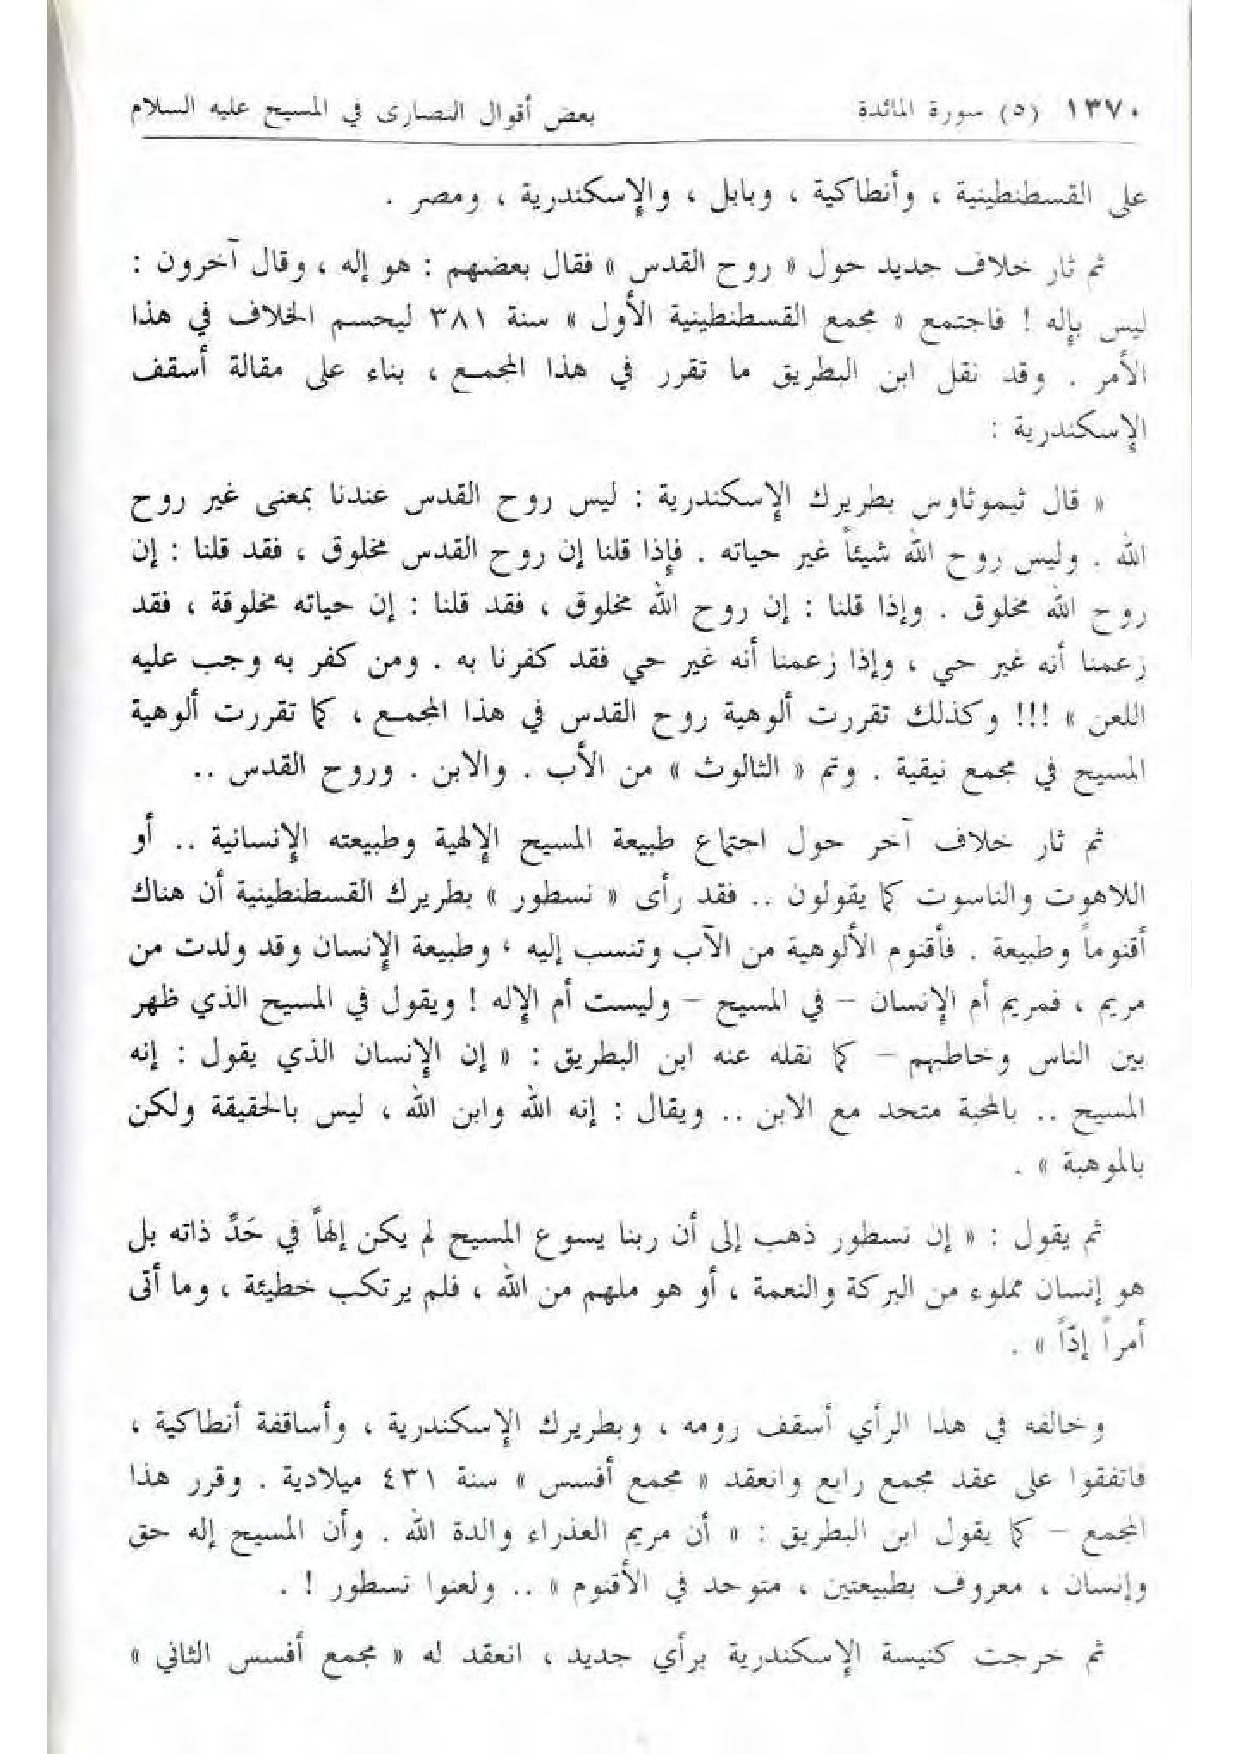 ١٣٧٠ (٥) سورة المائدة بعض أقوال النصارى في المسيح عليه السلام
على القسطنطينية ، وأنطاكية ، وبابل ، والإسكندرية ، ومصر .
ثم ثار خلاف جديد حول « روح القدس » فقال بعضهم : هو إله ، وقال آخرون :
ليس بإله ! فاجتمع « مجمع القسطنطينية الأول » سنة ٣٨١ ليحسم الخلاف في هذا
الأمر . وقد نقل ابن البطريق ما تقرر في هذا المجمع ، بناء على مقالة أسقف
الإسكندرية :
« قال ثيموثاوس بطريرك الإسكندرية : ليس روح القدس عندنا بمعنى غير روح
الله . وليس روح الله شيئاً غير حياته . فإذا قلنا إن روح القدس مخلوق ، فقد قلنا : إن
روح الله مخلوق . وإذا قلنا : إن روح الله مخلوق ، فقد قلنا : إن حياته مخلوقة ، فقد
زعمنا أنه غير حي ، وإذا زعمنا أنه غير حي فقد كفرنا به . ومن كفر به وجب عليه
اللعن » !!! وكذلك تقررت ألوهية روح القدس في هذا المجمع ، كما تقررت ألوهية
المسيح في مجمع نيقية . وتم « الثالوث » من الأب . والابن . وروح القدس ..
ثم ثار خلاف آخر حول اجتماع طبيعة المسيح الإلهية وطبيعته الإنسانية .. أو
اللاهوت والناسوت كما يقولون .. فقد رأى « نسطور » بطريرك القسطنطينية أن هناك
أقنوماً وطبيعة . فأقنوم الألوهية من الآب وتنسب إليه ، وطبيعة الإنسان وقد ولدت من
مريم ، فمريم أم الإنسان – في المسيح – وليست أم الإله ! ويقول في المسيح الذي ظهر
بين الناس وخاطبهم – كما نقله عنه ابن البطريق : « إن الإنسان الذي يقول : إنه
المسيح .. بالمحبة متحد مع الابن .. ويقال : إنه الله وابن الله ، ليس بالحقيقة ولكن
بالموهبة » .
ثم يقول : « إن نسطور ذهب إلى أن ربنا يسوع المسيح لم يكن إلهاً في حَدِّ ذاته بل
هو إنسان مملوء من البركة والنعمة ، أو هو ملهم من الله ، فلم يرتكب خطيئة ، وما أتى
أمراً إدّاً » .
وخالفه في هذا الرأي أسقف رومه ، وبطريرك الإسكندرية ، وأساقفة أنطاكية ،
فاتفقوا على عقد مجمع رابع وانعقد « مجمع أفسس » سنة ٤٣١ ميلادية . وقرر هذا
المجمع – كما يقول ابن البطريق : « أن مريم العذراء والدة الله . وأن المسيح إله حق
وإنسان ، معروف بطبيعتين ، متوحد في الأقنوم » .. ولعنوا نسطور ! .
ثم خرجت كنيسة الإسكندرية برأي جديد ، انعقد له « مجمع أفسس الثاني »